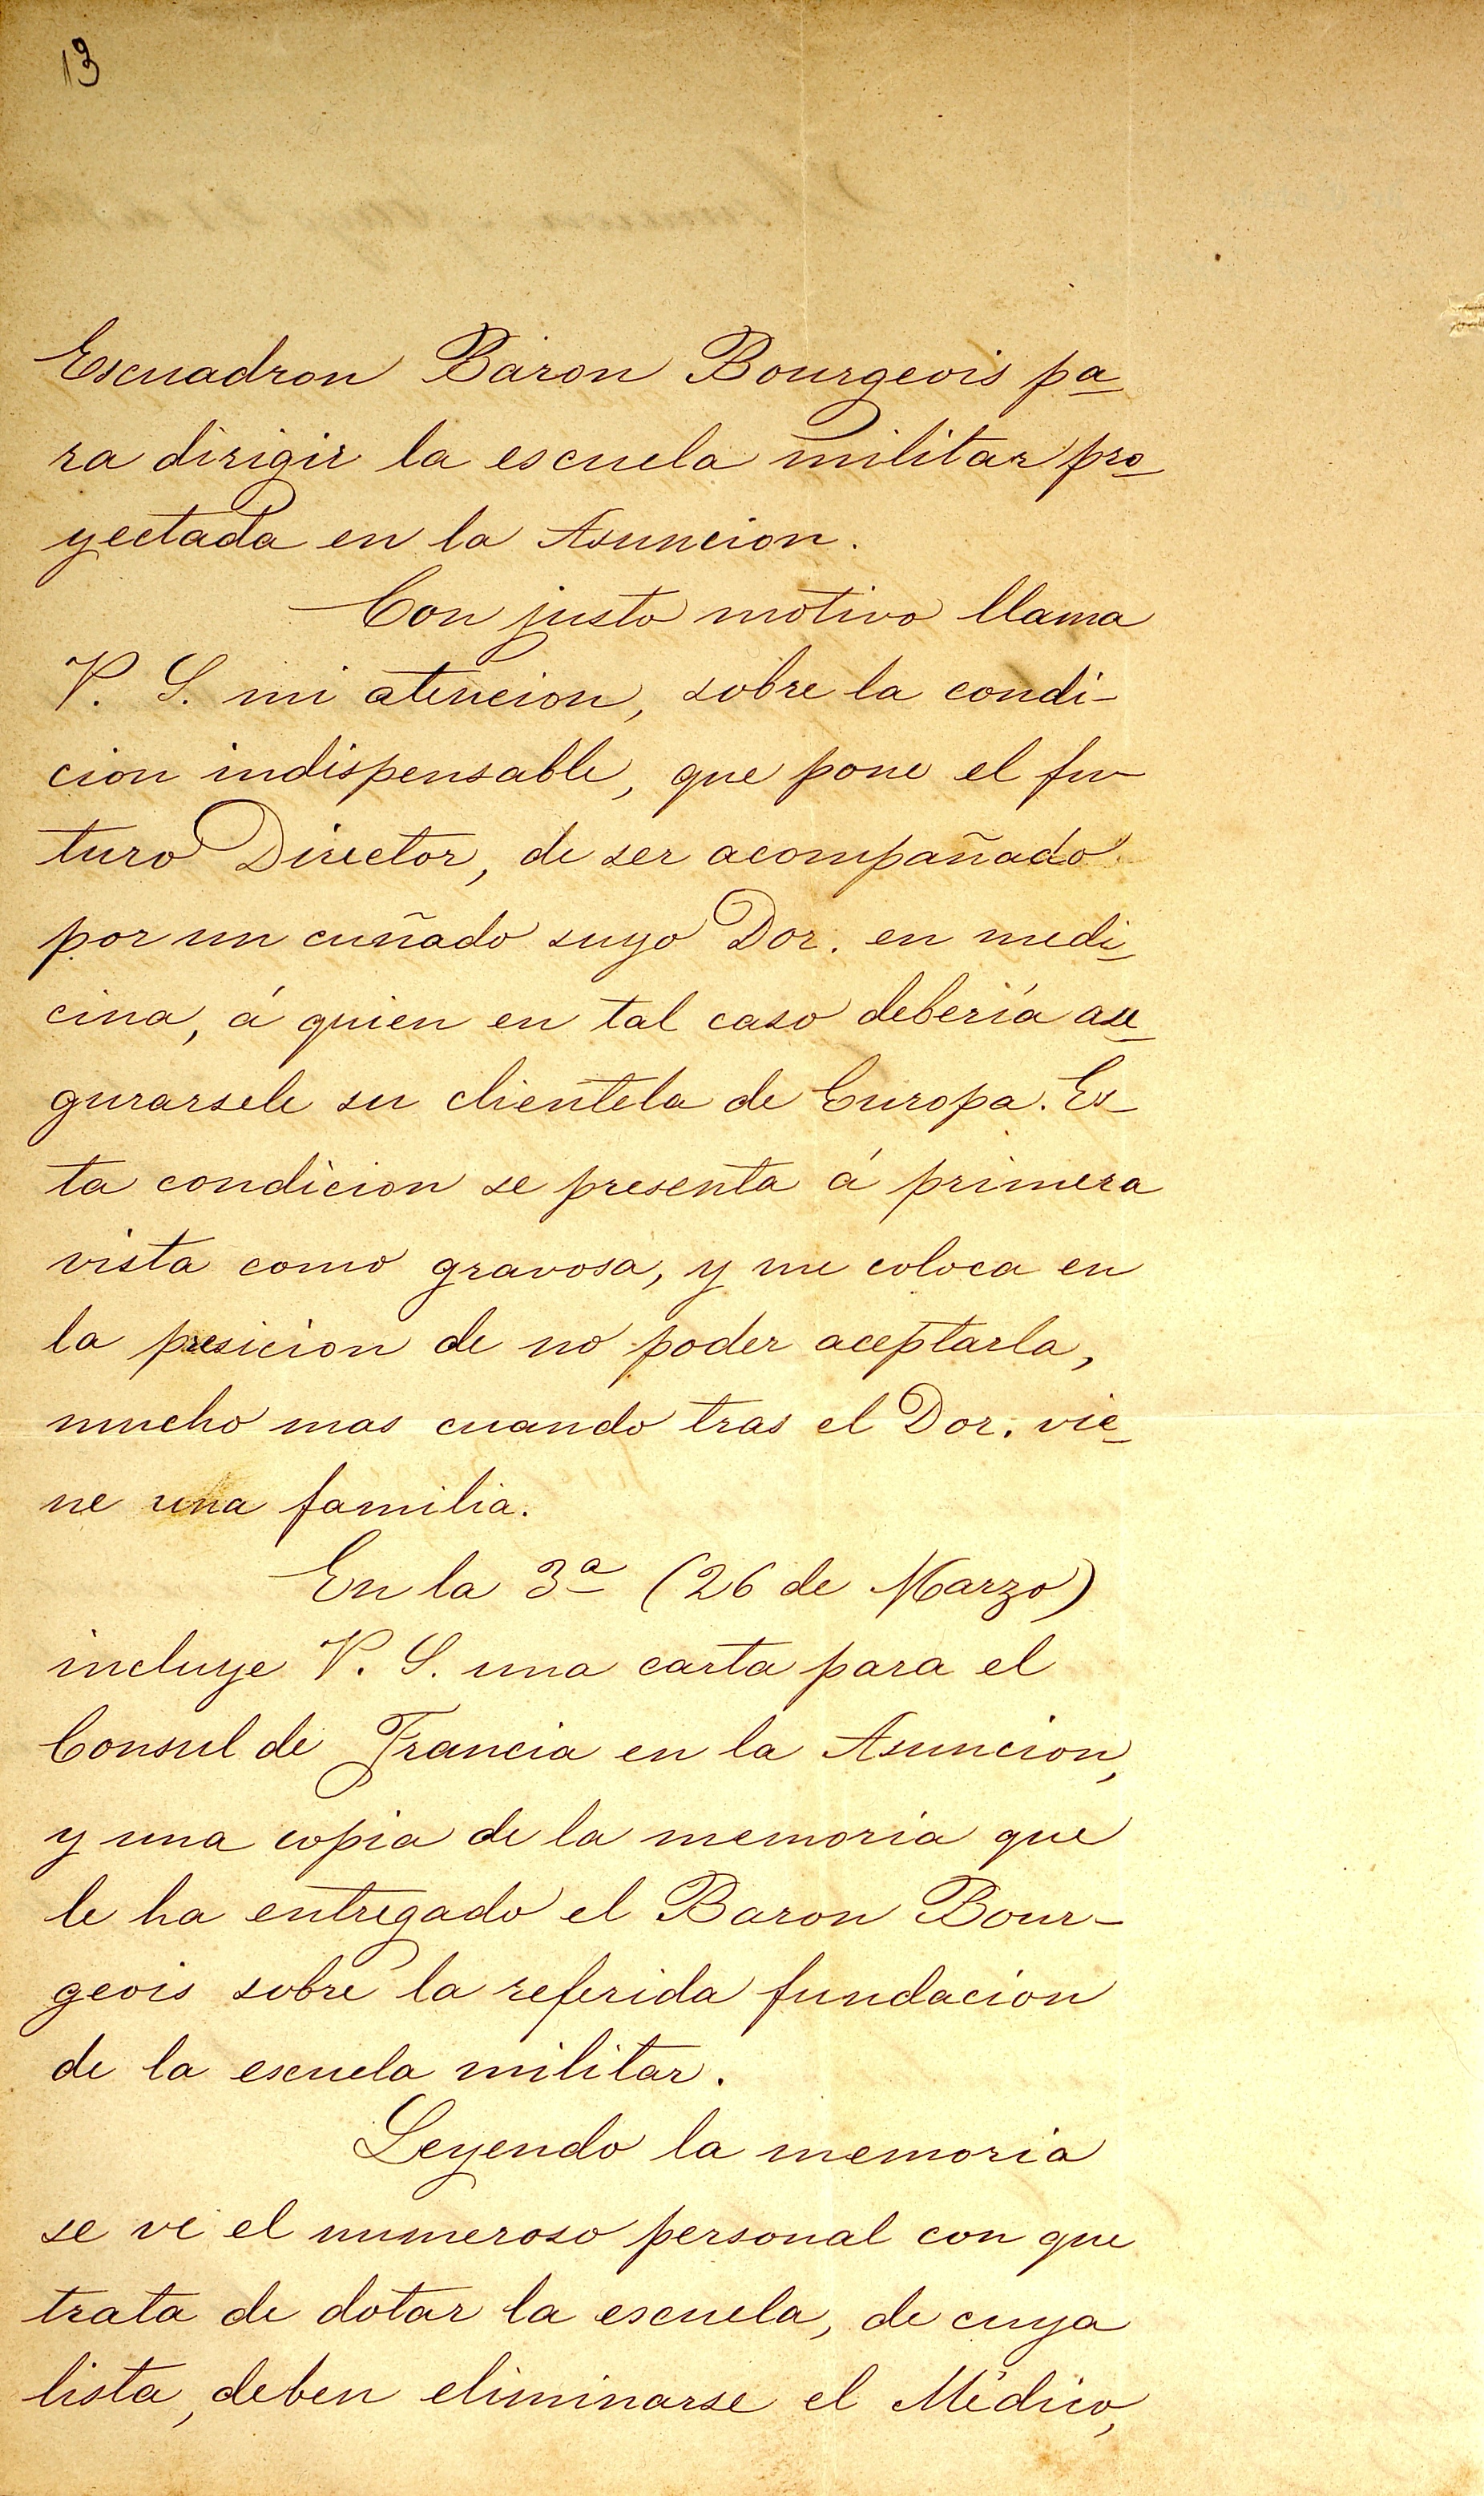 13
Escuadron Baron Bourgeois pa
ra dirigir la escuela militar pro
yectada en la Asuncion.
Con justo motivo llama
V. S. mi atencion, sobre la condi-
cion indispensable, que pone el fu-
turo Director, de ser acompañado
por un cuñado suyo Dor. en medi
cina, á quien en tal caso debería ase
gurarsele su clientela de Europa. Es-
ta condicion se presenta á primera
vista como gravosa, y me coloca en
la presicion de no poder aceptarla,
mucho mas cuando tras el Dor. vie
ne una familia.
En la 3ª (26 de Marzo)
incluye V. S. una carta para el
Consul de Francia en la Asuncion,
y una copia de la memoria que
le ha entregado el Baron Bour-
geois sobre la referida fundacion
de la escuela militar.
Leyendo la memoria
se ve el numeroso personal con que
trata de dotar la escuela, de cuya
lista, deben eliminarse el Médico,